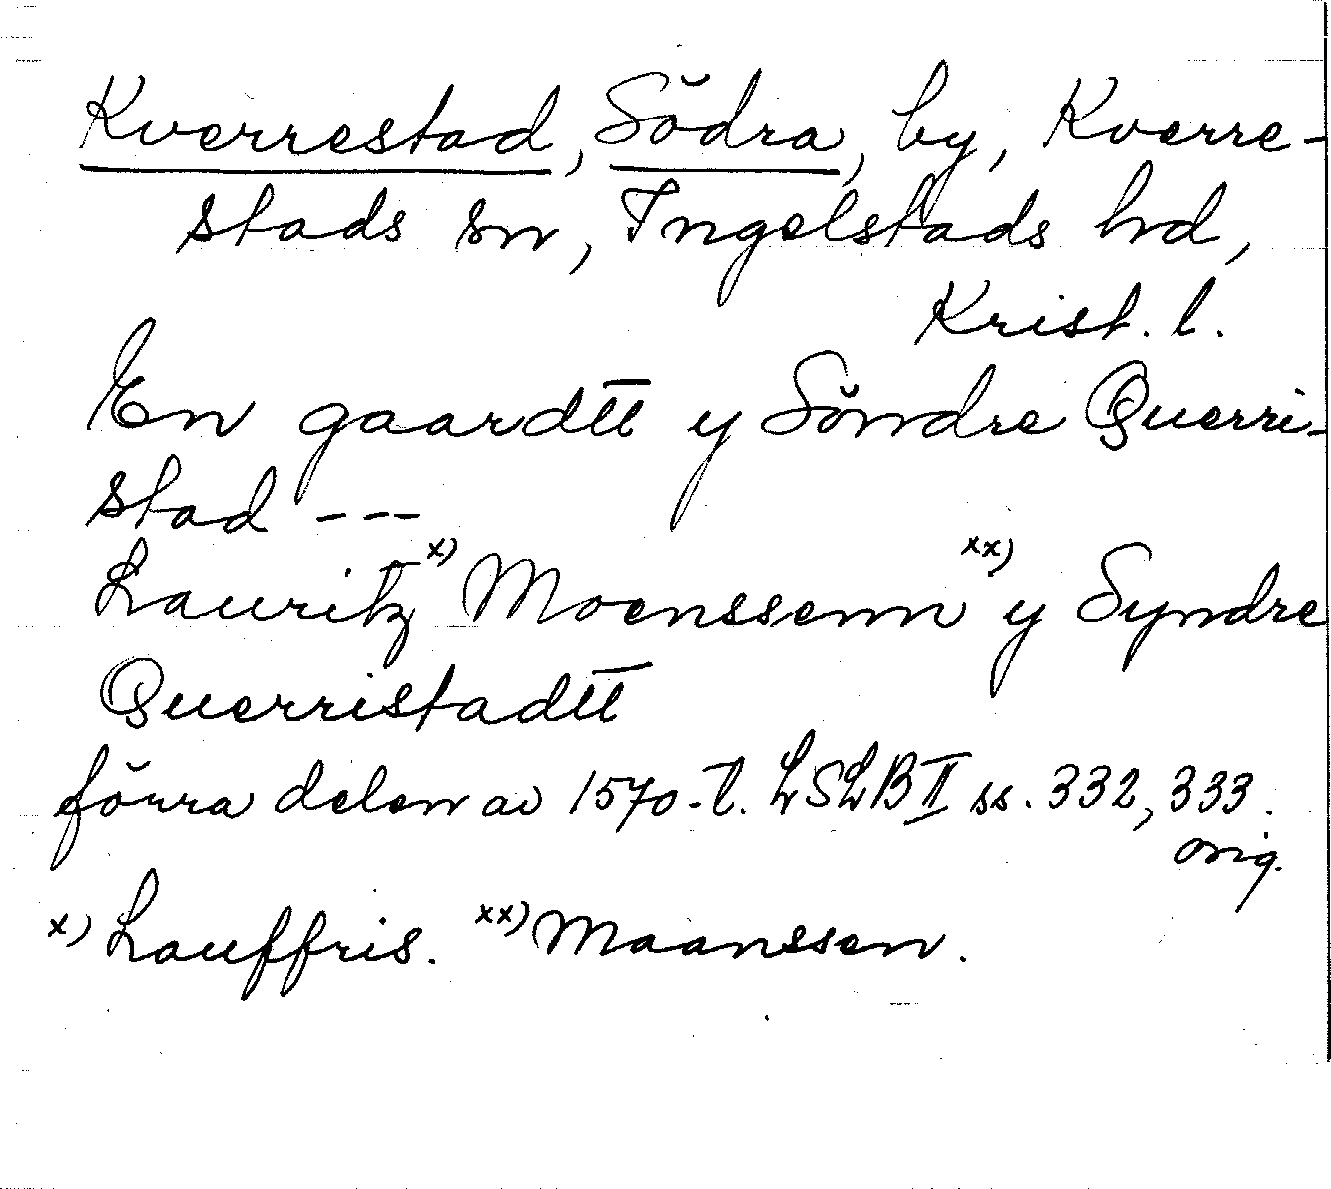 Kverrestad, Södra, by, Kverre-
stads sn, Ingelstads hd,
Krist. l.
En gaardtt y Söndre Querri-
stad ---
Lauritz x) Moenssenn xx) y Syndre
Querristadtt
förra delen av 1570-t. LSLB II ss. 332, 333.
orig.
x) Lauffris. xx) Maanssen.